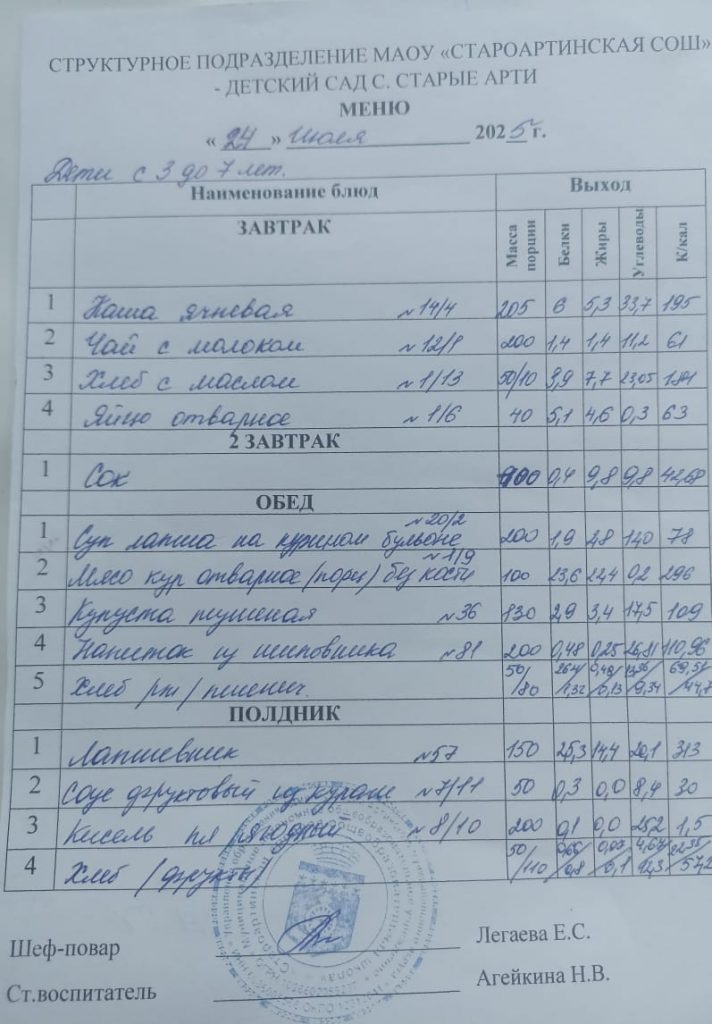 СТРУКТУРНОЕ ПОДРАЗДЕЛЕНИЕ МАОУ «СТАРОАРТИНСКАЯ СОШ»
- ДЕТСКИЙ САД С. СТАРЫЕ АРТИ
МЕНЮ
« 24 » Июля 2025 г.
Дети с 3 до 7 лет.
Наименование блюд Выход
ЗАВТРАК Масса порции Белки Жиры Углеводы К/кал
1 Каша ячневая №14/4 205 6 5,3 33,7 195
2 Чай с молоком №12/1 200 1,4 1,4 11,2 61
3 Хлеб с маслом №1/13 50/10 3,9 7,7 23,05
4 Яйцо отварное №1/6 40 5,1 4,6 0,3 63
2 ЗАВТРАК
1 Сок 100 0,4 9,8 9,8 42,68
ОБЕД
№20/2
1 Суп лапша на курином бульоне 200 1,9 2,8 12,0 78
№1/9
2 Мясо кур отварное (порц) без кости 100 23,6 22,4 0,2 296
3 Капуста тушеная №36 130 2,9 3,4 17,5 109
4 Напиток из шиповника №81 200 0,48 0,25 110,96
5 Хлеб рж/пшенич. 50/80
ПОЛДНИК
1 Лапшевник №57 150 25,3 14,4 20,1 313
2 Соус фруктовый из кураги №7/11 50 0,3 0,0 8,4 30
3 Кисель пл ягодный №8/10 200 0,1 0,0 25,2 1,5
4 Хлеб (фрукты) 50/110
Шеф-повар Легаева Е.С.
Ст.воспитатель Агейкина Н.В.